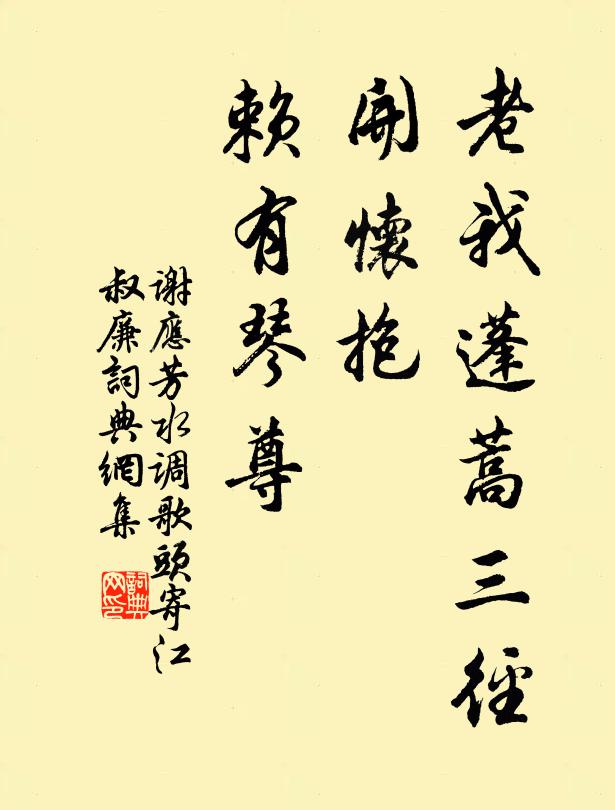 老我蓬蒿三徑
開懷抱
賴有琴尊
謝應芳水調歌頭寄江
叔廉詞典網集
詞典
网印